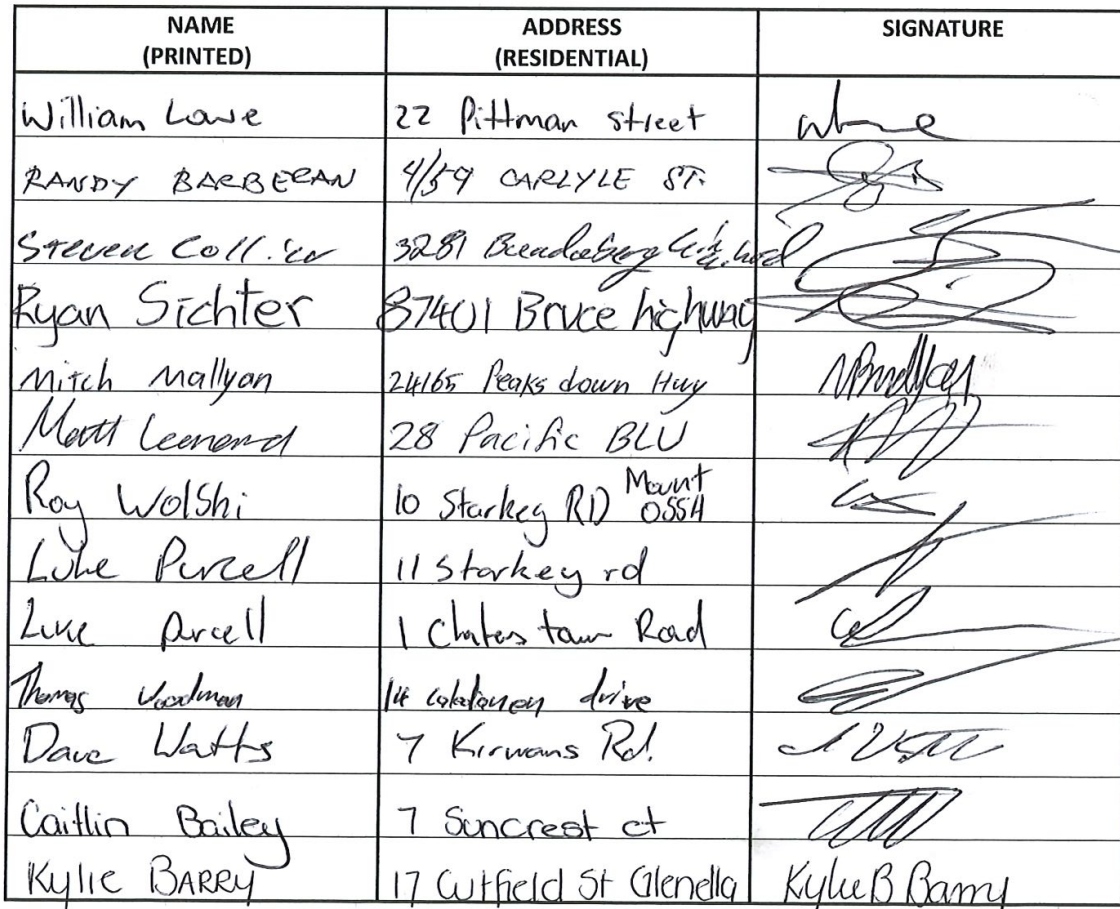 NAME ADDRESS SIGNATURE
(PRINTED) (RESIDENTIAL)
William Lowe 22 Pittman street
RANDY BARBERAN 4/59 CARLYLE ST.
Steven 3281
Ryan Sichter 87401 Bruce highway
Mitch Mallyan 24165 Peaks down Hwy
Matt Leonard 28 Pacific BLU
Roy Wolshi 10 Starkey RD Mount OSSA
Luke Purcell 11 Starkey rd
Luke purcell 1 Road
Thomas Woodman 14 drive
Dave Watts 7 Kirwans Rd.
Caitlin Bailey 7 Suncrest ct
Kylie BARRY 17 Cutfield St Glenella Kylie B Barry